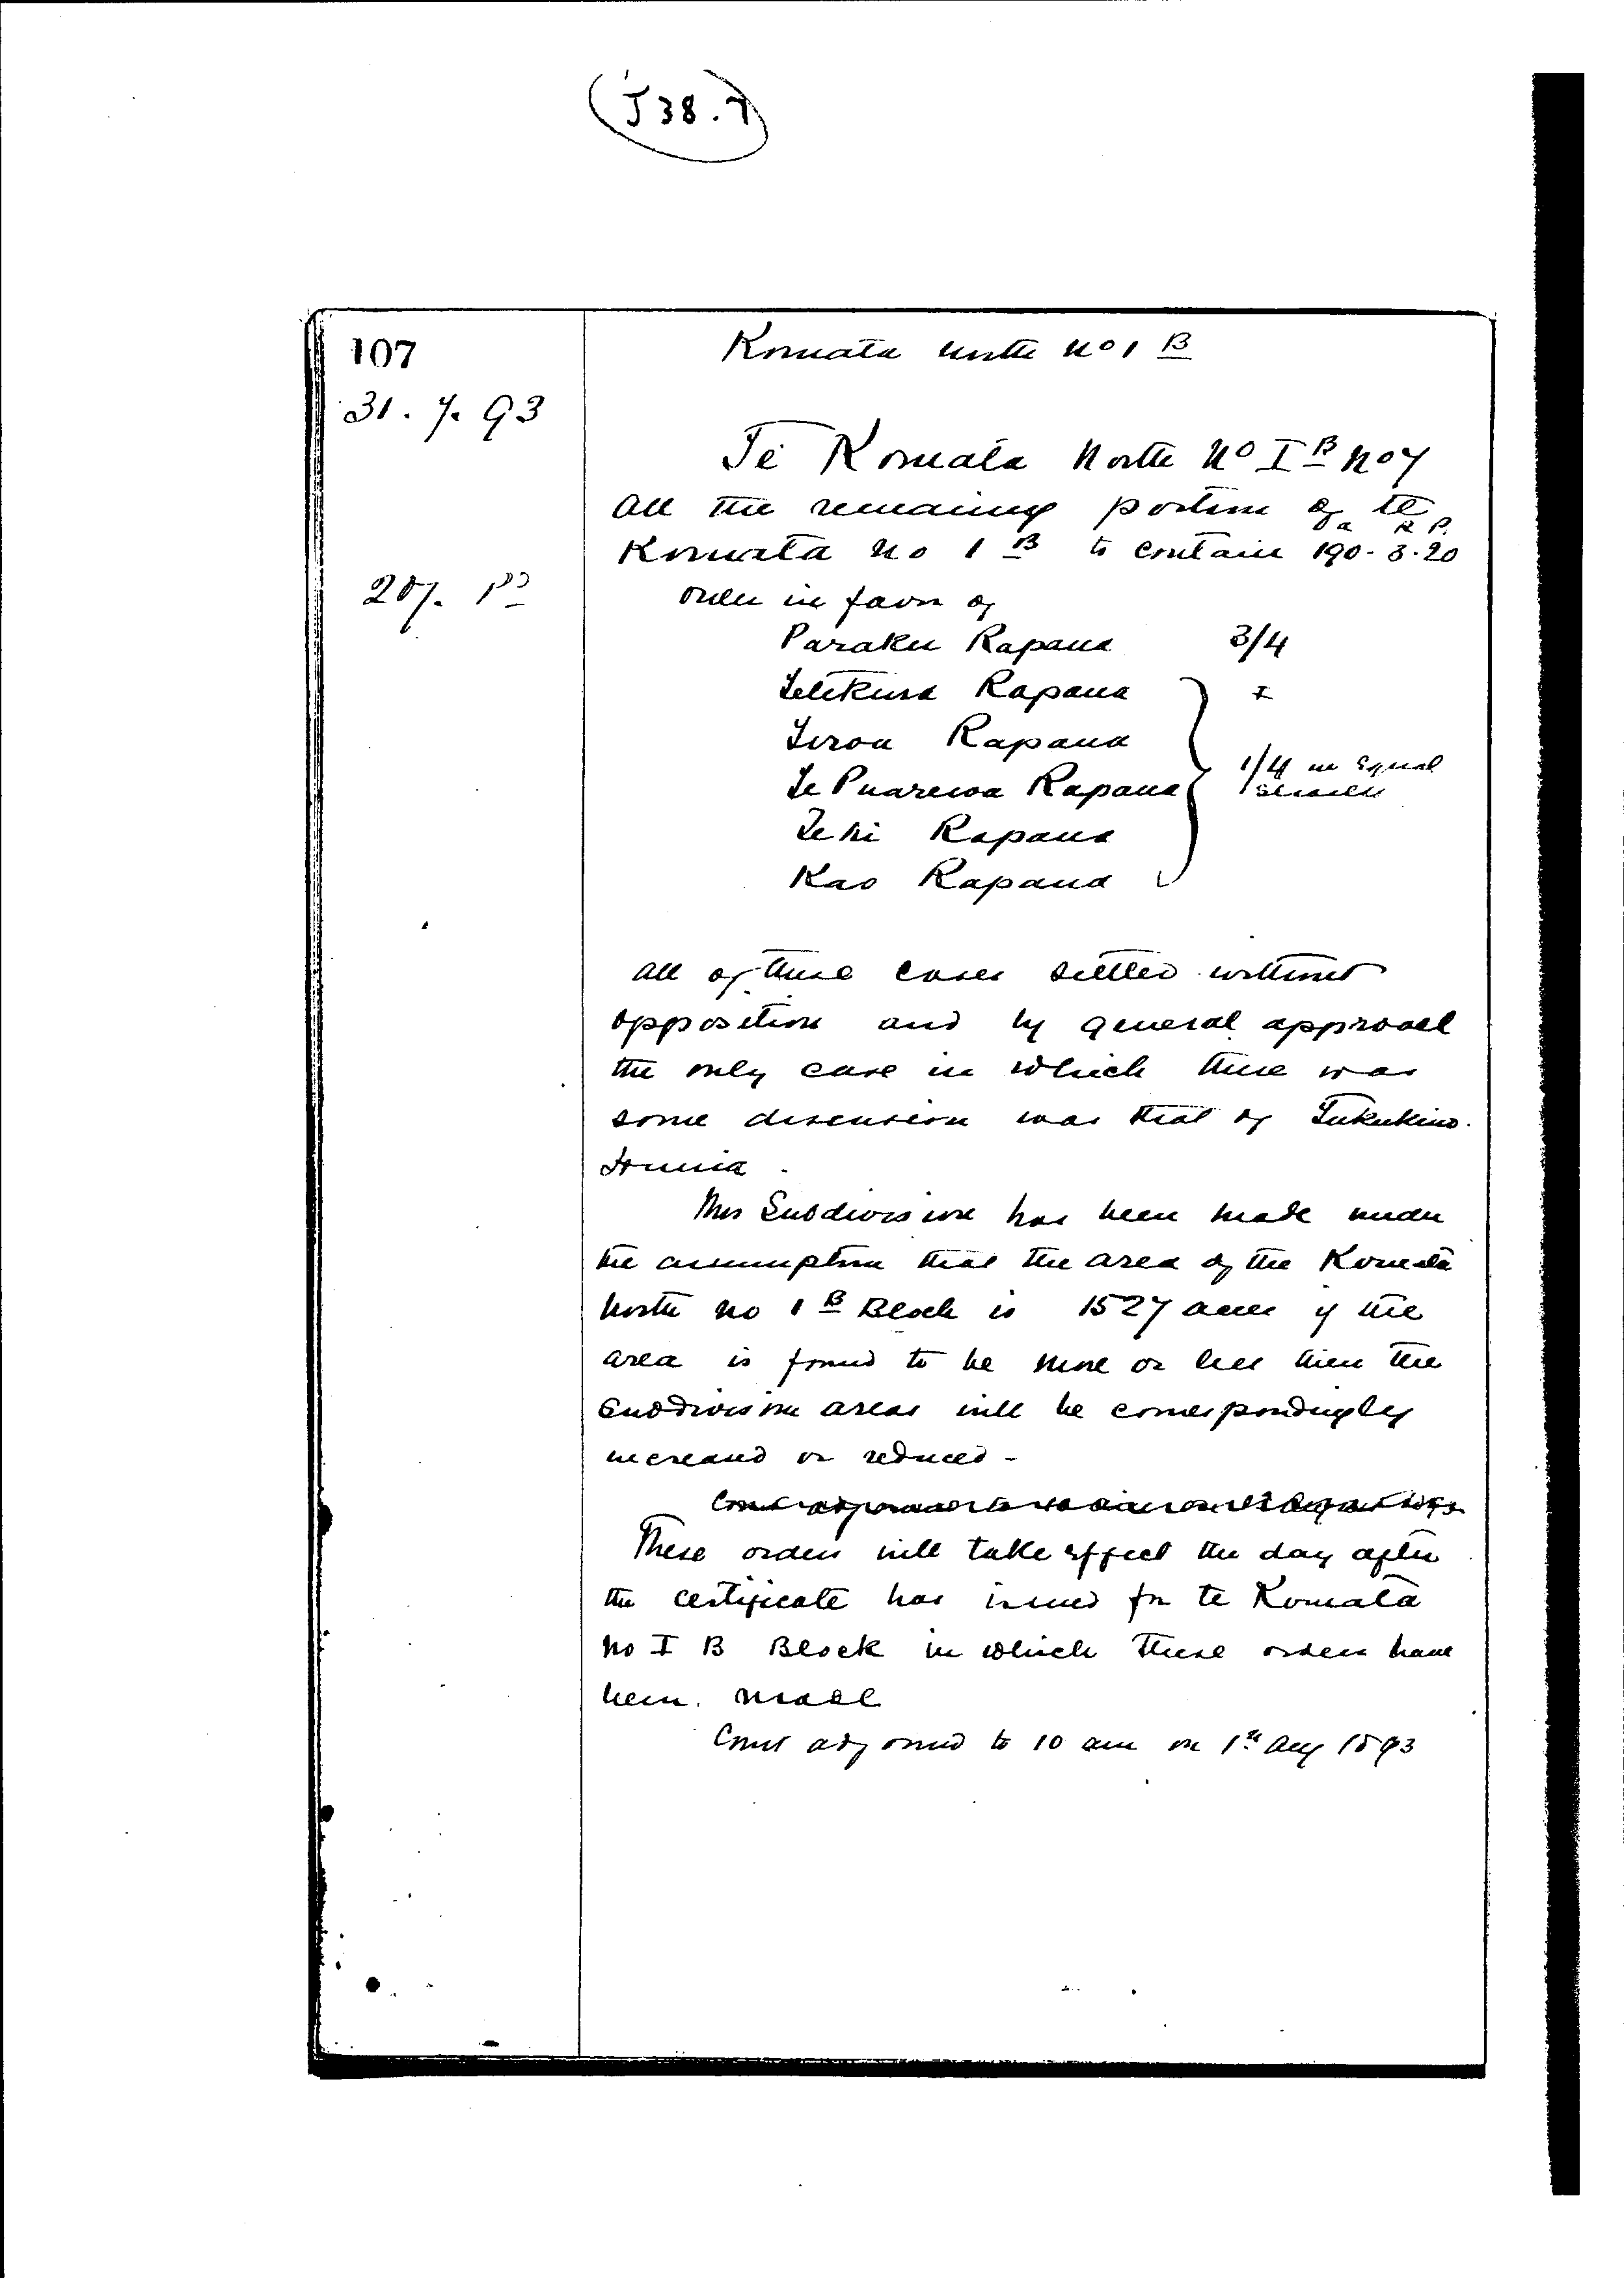 (J38.7)
107
Komata North No 1 B
31. 7. 93
Te Komata North No I B No 7
All the remaining portion of te
a R P.
Komata No 1 B to contain 190-3-20
20/- Pd
Order in favor of
Paraku Rapana 3/4
Rapana
Rapana
1/4 in Equal
Te Puarewa Rapana shares
Rapana
Kao Rapana
All of these cases settled without
opposition and by general approval
the only case in which there was
some discussion was that of Tukukino
This Subdivision has been made under
the assumption that the area of the Komata
North No 1 B Block is 1527 acres if the
area is found to be more or less then the
Subdivision areas will be correspondingly
increased or reduced -
These orders will take effect the day after
the certificate has issued for te Komata
No I B Block in which these orders have
been made
Court adjourned to 10 am on 1st Aug 1893